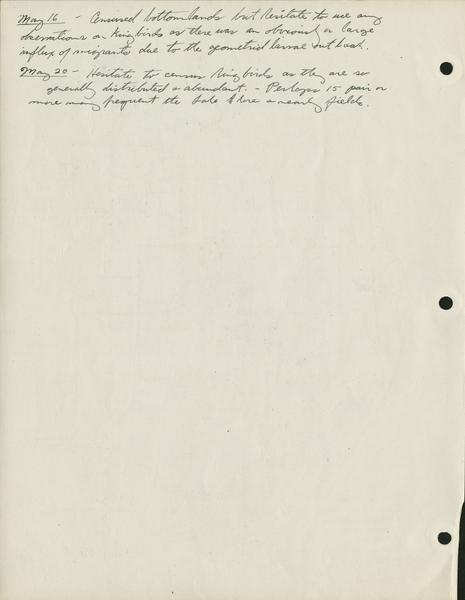 May 16 - Censused bottomlands but hesitate to use any
observations on Kingbirds as there was an obviously large
influx of migrants due to the geometrid larval outbreak.
May 20 - Hesitate to census Kingbirds as they are so
generally distributed & abundant. - Perhaps 15 pair or
more may frequent the lake shore & nearby fields.